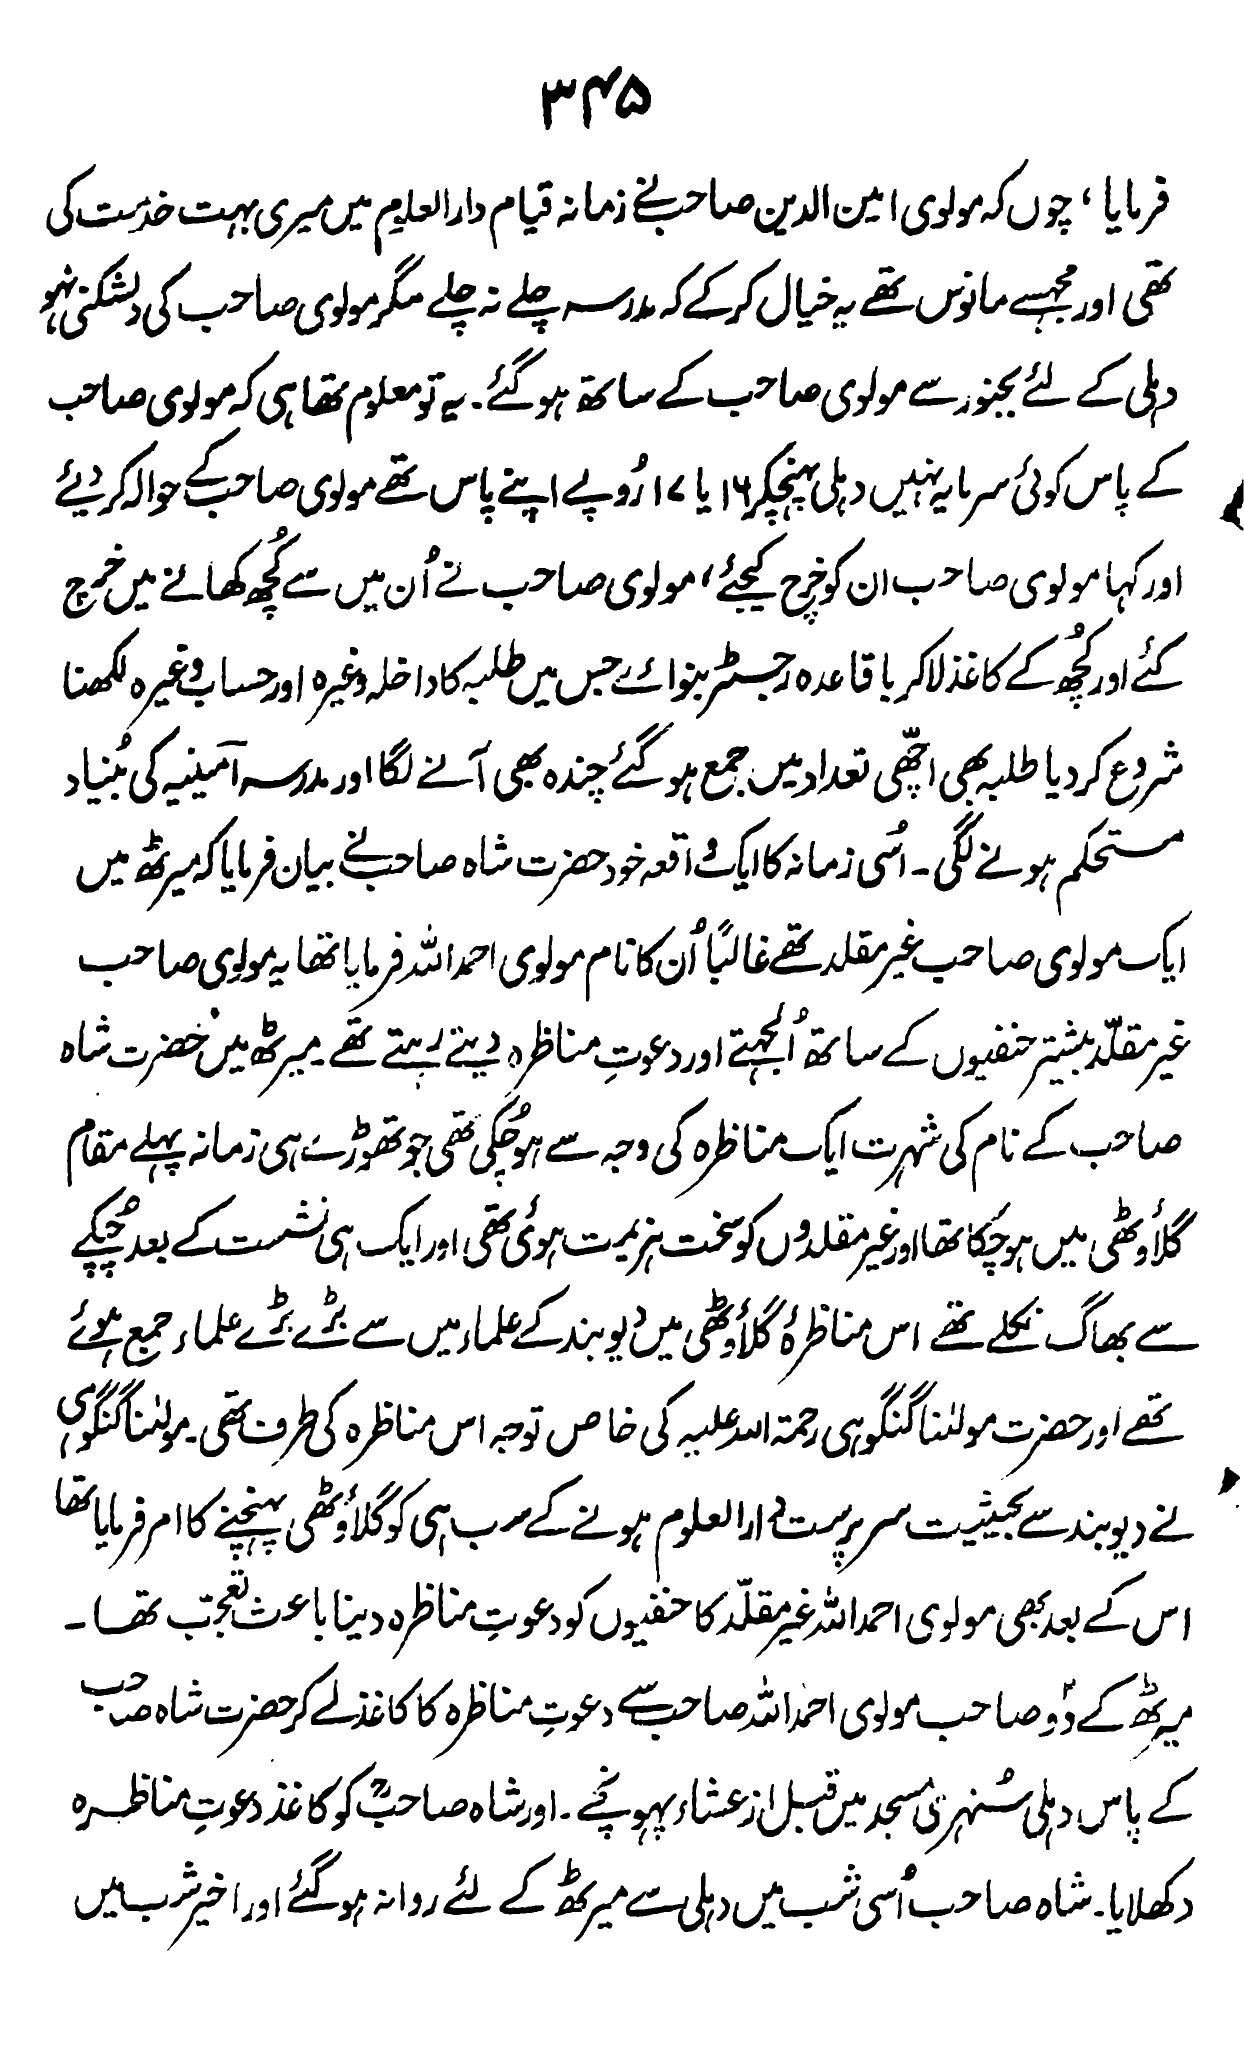 ۳۴۵
فرمایا، چوں کہ مولوی امین الدین صاحب نے زمانہ قیام دارالعلوم میں میری بہت خدمت کی
تھی اور مجھسے مانوس تھے یہ خیال کرکے کہ مدرسہ چلے نہ چلے مگر مولوی صاحب کی دلشکنی نہو
دہلی کے لئے بجنور سے مولوی صاحب کے ساتھ ہو گئے۔ یہ تو معلوم تھا ہی کہ مولوی صاحب
کے پاس کوئی سرمایہ نہیں دہلی پہنچکر ۱۶ یا ۱۷ رُوپے اپنے پاس تھے مولوی صاحب کے حوالہ کر دیئے
اور کہا مولوی صاحب ان کو خرچ کیجئے، مولوی صاحب نے اُن میں سے کُچھ کھانے میں خرچ
کئے اور کُچھ کے کاغذ لا کر باقاعدہ رجسٹر بنوائے جس میں طلبہ کا داخلہ وغیرہ اور حساب وغیرہ لکھنا
شروع کر دیا طلبہ بھی اچھّی تعداد میں جمع ہو گئے چندہ بھی آنے لگا اور مدرسہ آمینیہ کی بُنیاد
مستحکم ہونے لگی۔ اُسی زمانہ کا ایک واقعہ خود حضرت شاہ صاحب نے بیان فرمایا کہ میرٹھ میں
ایک مولوی صاحب غیر مقلد تھے غالبًا اُن کا نام مولوی احمد اللہ فرمایا تھا یہ مولوی صاحب
غیر مقلّد بیشتر حنفیوں کے ساتھ اُلجھتے اور دعوتِ مناظرہ دیتے رہتے تھے میرٹھ میں حضرت شاہ
صاحب کے نام کی شہرت ایک مناظرہ کی وجہ سے ہو چُکی تھی جو تھوڑے ہی زمانہ پہلے مقام
گلاؤٹھی میں ہو چُکا تھا اور غیر مقلدوں کو سخت ہزیمت ہوئی تھی اور ایک ہی نشست کے بعد چُپکے
سے بھاگ نکلے تھے اس مناظرۂ گلاؤٹھی میں دیوبند کے علماء میں سے بڑے بڑے علماء جمع ہوئے
تھے اور حضرت مولٰنا گنگوہی رحمۃ اللہ علیہ کی خاص توجہ اس مناظرہ کی طرف تھی۔ مولٰنا گنگوہی
نے دیوبند سے بحیثیت سرپرست دارالعلوم ہونے کے سب ہی کو گلاؤٹھی پہنچنے کا امر فرمایا تھا
اس کے بعد بھی مولوی احمد اللہ غیر مقلّد کا حنفیوں کو دعوتِ مناظرہ دینا باعث تعجّب تھا۔
میرٹھ کے دو صاحب مولوی احمد اللہ صاحب سے دعوتِ مناظرہ کا کاغذ لے کر حضرت شاہ صاحب
کے پاس دہلی سُنہری مسجد میں قبل از عشاء پہونچے۔ اور شاہ صاحبؒ کو کاغذ دعوتِ مناظرہ
دکھلایا۔ شاہ صاحب اُسی شب میں دہلی سے میرٹھ کے لئے روانہ ہو گئے اور اخیر شب میں